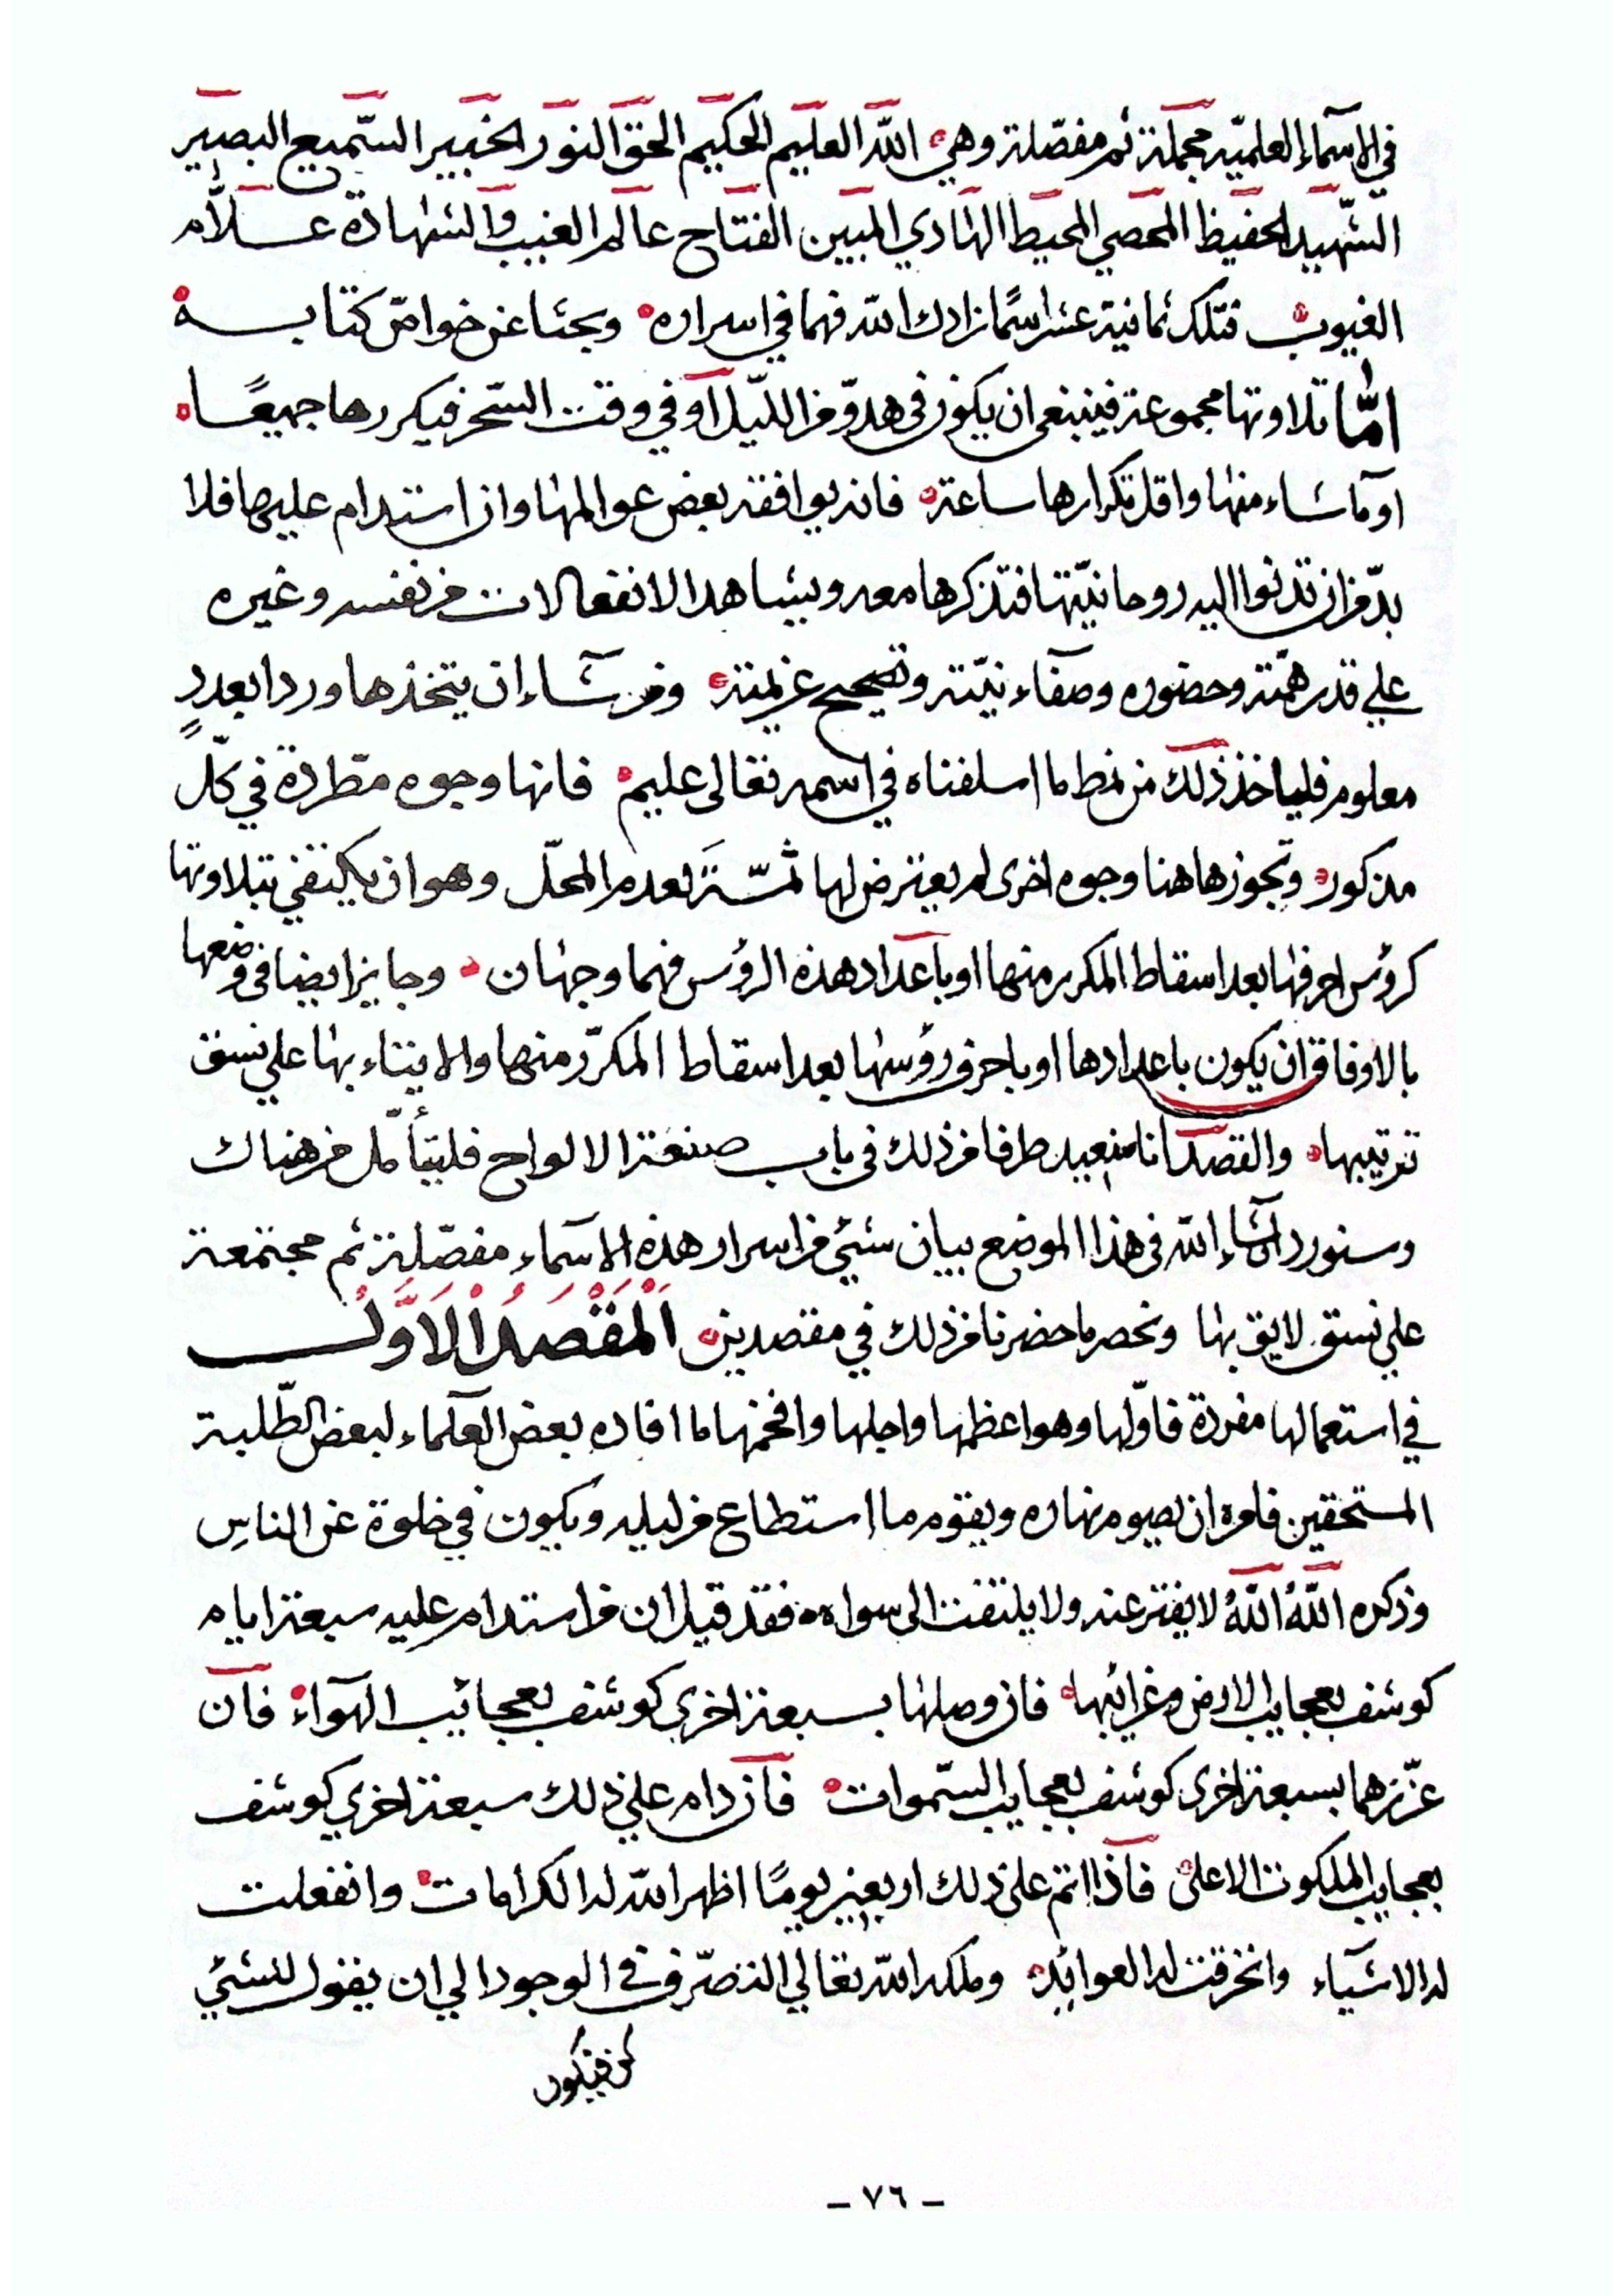 في الاسماء العلميّه مجملة ثم مفصّلة وهي الله العليم الحكيم الحق النور الخبير السّميع البصير
الشّهيد الحفيظ المحصي المحيط الهادي المبين الفتاح عالم الغيب والشهادة عــلّام
الغيوب فتلك ثمانية عشر اسمًا زادك الله فهما في اسراره وبحثا عن خواصّ كتابــه
امّا تلاوتها مجموعة فينبغى ان يكون فى هدوّ من اللّيل او في وقت السّحر فيكررها جميعًــا
او ما شاء منها واقل تكرارها ساعة فانه يوافقه بعض عوالمها وان استدام عليها فلا
بدّ من ان تدنوا اليه روحانيّتها فتذكرها معه ويشاهد الانفعالات من نفسه وغيره
علي قدر همّته وحضوره وصفاء نيّته وتصحيح عزيمته ومن شــاء ان يتخذها وردا بعددٍ
معلوم فلياخذ ذلك من نمط ما اسلفناه في اسمه تعالى عليم فانها وجوه مطّردة في كلّ
مذكور وتجوز هاهنا وجوه اخرى لم يعترض لها ثمّــة لعدم المحلّ وهو ان يكتفي بتلاوتها
كرؤس احرفها بعد اسقاط المكرر منها او باعداد هذه الرؤس فهما وجهان وجايز ايضا في وضعها
بالاوفاق ان يكون باعدادها او باحرف رؤسها بعد اسقاط المكرّر منها والابتناء بها علي نسق
ترتيبها والقصد انا سنعيد طرفا من ذلك في باب صنعة الالواح فليتأمّل من هناك
وسنورد ان شاء الله فى هذا الموضع بيان شئي من اسرار هذه الاسماء مفصّلة ثم مجتمعة
علي نسق لايق بها ونحصر ما حضرنا من ذلك في مقصدين اَلْمَقْصَدُ الْاَوَّلُ
في استعمالها مفردة فاوّلها وهو اعظمها واجلها وافخمها ما افاده بعض العلماء لبعض الطّلبة
المستحقين فامره ان يصوم نهاره ويقوم ما استطاع من ليله ويكون في خلوة عن الناسِ
وذكره اللهُ اللهُ لا يفتر عنه ولا يلتفت الى سواه فقد قيل ان من استدام عليه سبعة ايام
كوشف بعجايب الارض وغرائبها فان وصلها بسبعة اخري كوشف بعجائب الهواء فان
عزّزهما بسبعة اخرى كوشف بعجايب السّموات فان دام علي ذلك سبعة اخري كوشف
بعجايب الملكوت الاعلى فاذا اتم على ذلك اربعين يومًا اظهر الله له الكرامات وانفعلت
له الاشياء وانخرقت له العوائد وملكه الله تعالي التصرّف في الوجود الي ان يقول للشئي
كن فيكون
- ٧٦ -